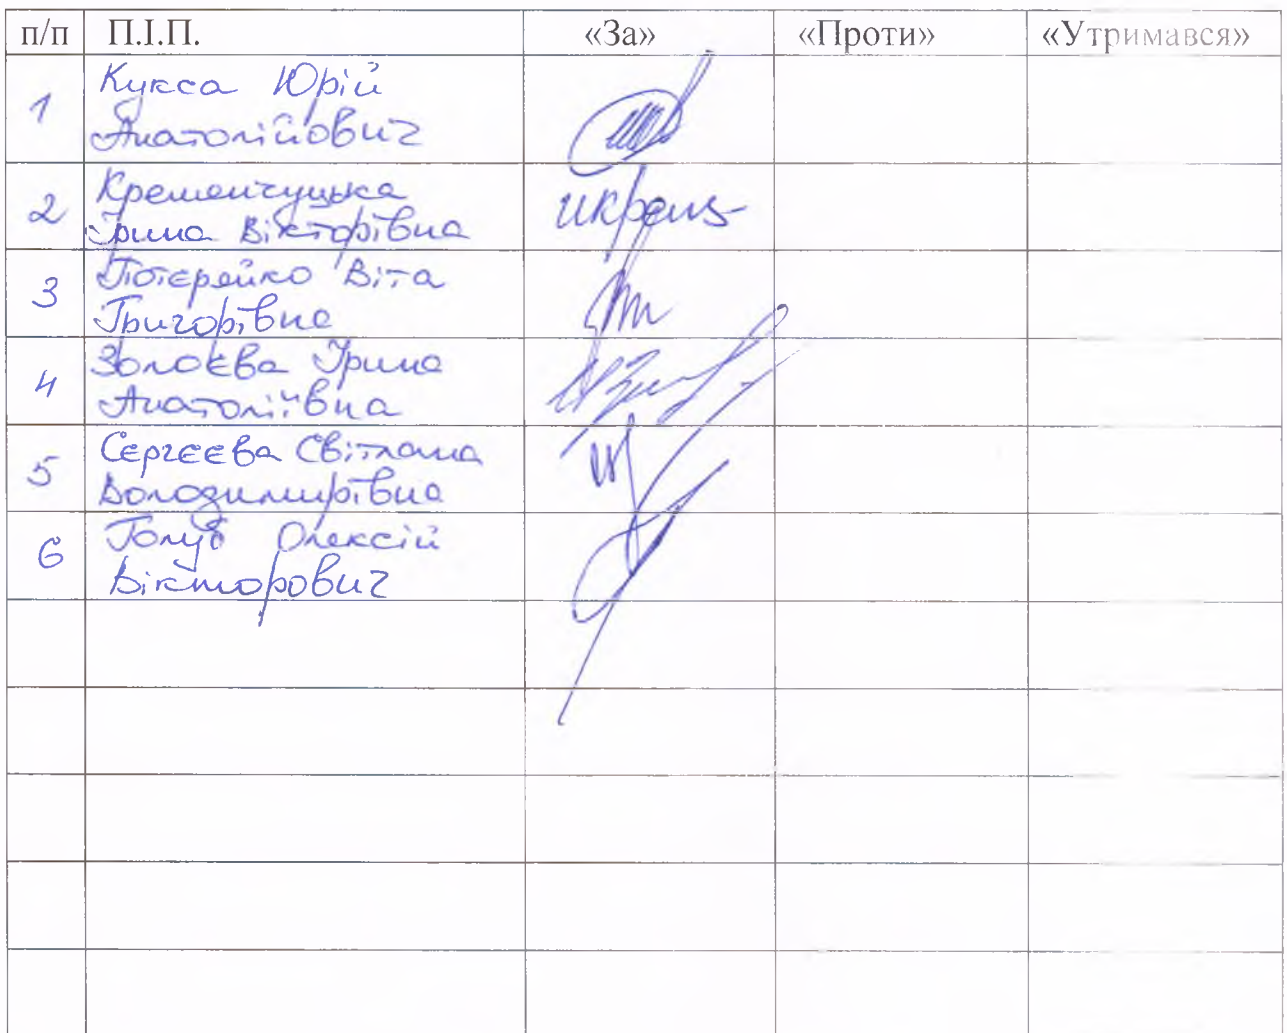 п/п П.І.П. «За» «Проти» «Утримався»
1 Кукса Юрій
Анатолійович
2 Кременчуцька
Ірина Вікторівна
3 Потєрейко Віта
Григорівна
4 Ірина
Анатоліївна
5 Сергеєва Світлана
Володимирівна
6 Голуб Олексій
Вікторович